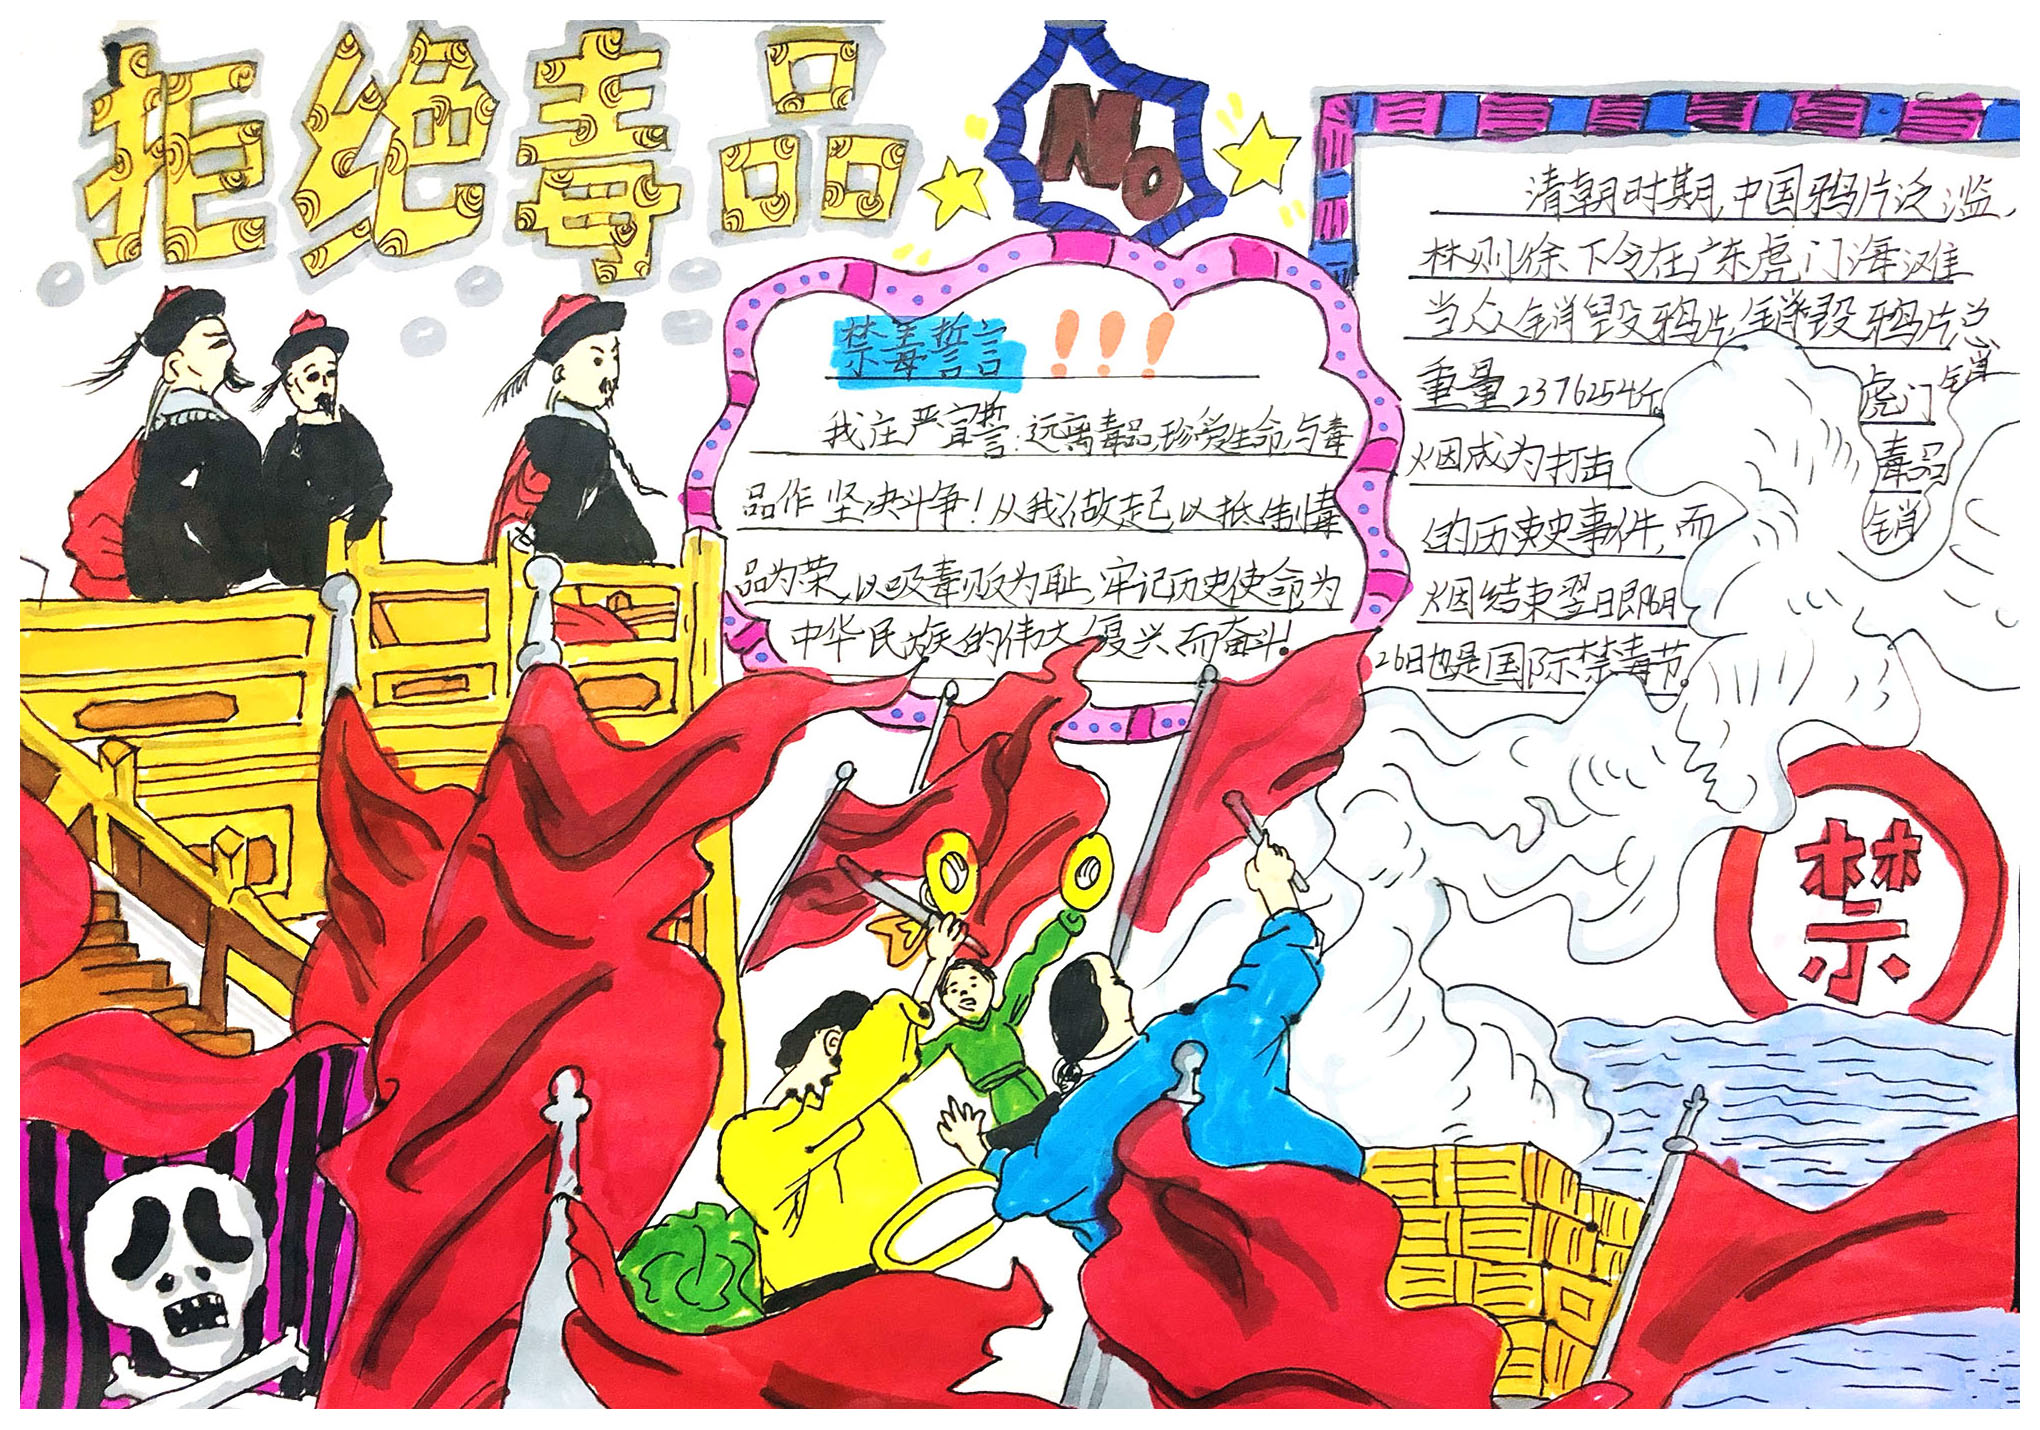 拒绝毒品
No
禁毒誓言!!!
我庄严宣誓:远离毒品,珍爱生命,与毒
品作坚决斗争!从我做起,以抵制毒
品为荣,以吸毒贩为耻,牢记历史使命,为
中华民族的伟大复兴而奋斗!
清朝时期,中国鸦片泛滥,
林则徐下令在广东虎门海滩
当众销毁鸦片,销毁鸦片总
重量2376254斤。虎门销
烟成为打击毒品
的历史事件,而销
烟结束翌日即6月
26日也是国际禁毒节。
禁